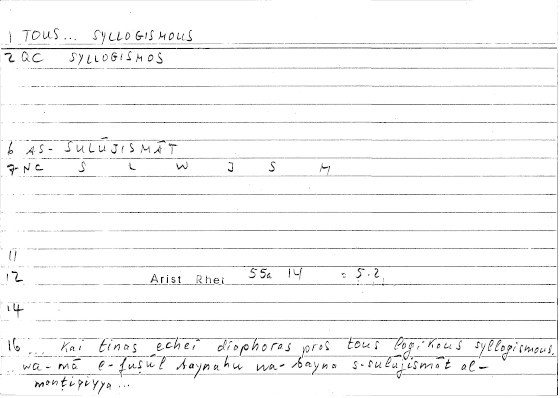 1 TOUS... SYLLOGISMOUS
2 QC SYLLOGISMOS
6 AS-SULŪJISMĀT
7 NC S L W J S M
11
12 Arist Rhet 55a 14 = 5.2,
14
16 ... kai tinas echei diaphoras pros tous logikous syllogismous.
.. wa-mā l-fuṣūl baynahu wa-bayna s-sulūjismāt al-
manṭiqiyya...